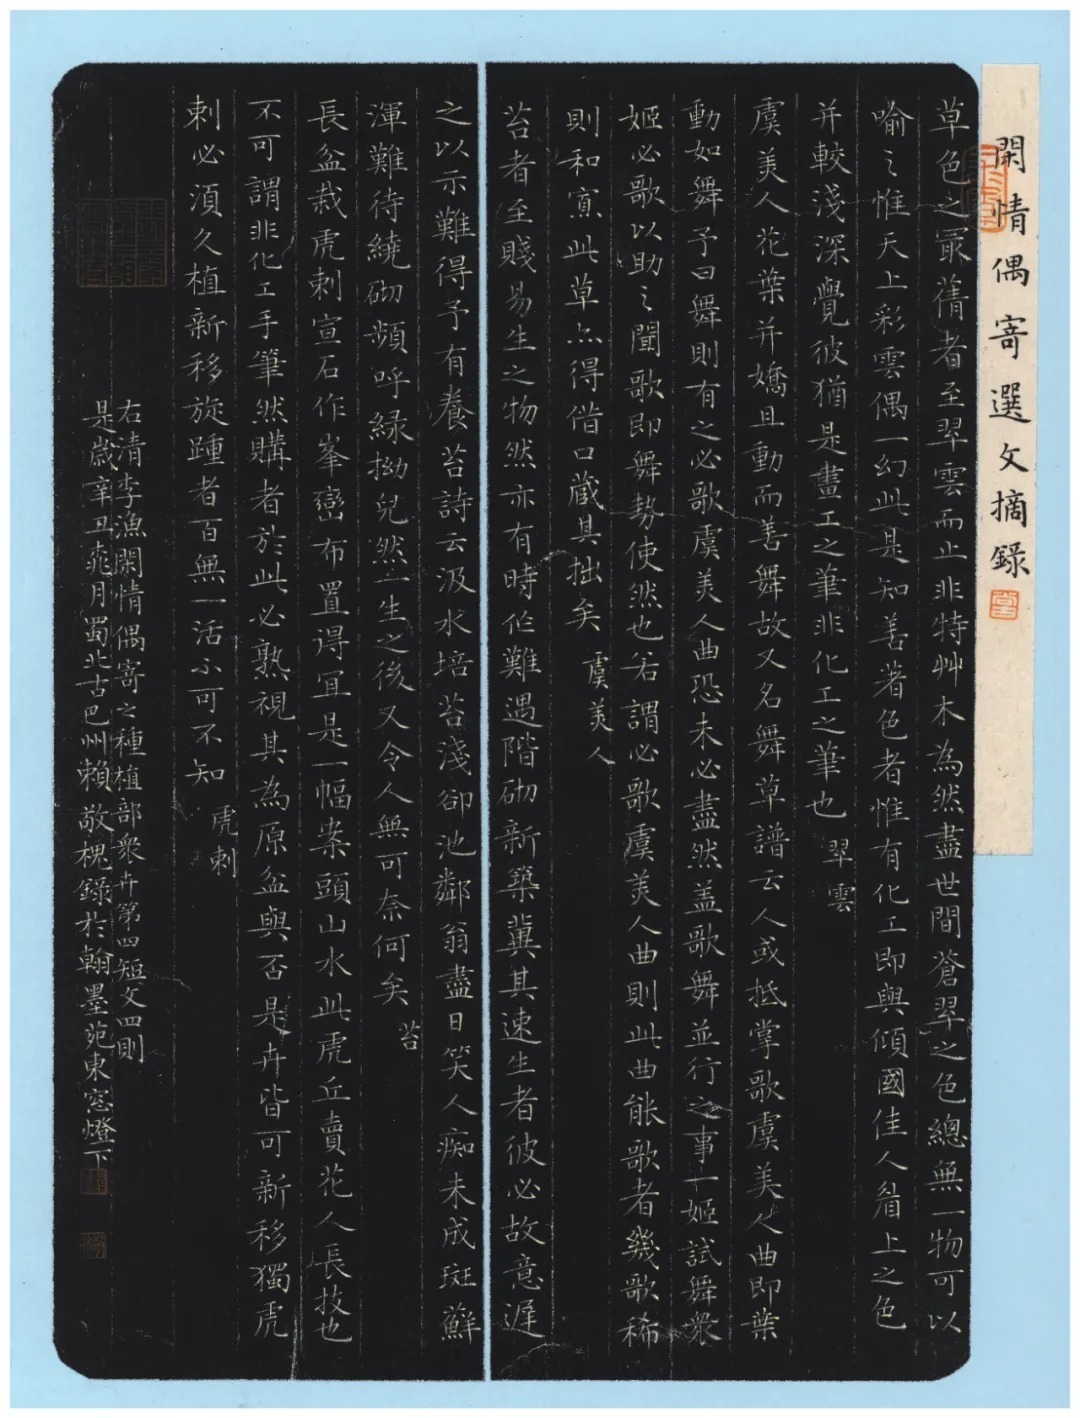 閑情偶寄選文摘錄
草色之最蒨者至翠雲而止非特艸木為然盡世間蒼翠之色總無一物可以
喻之惟天上彩雲偶一幻此是知善著色者惟有化工即與傾國佳人眉上之色
并較淺深覺彼猶是畫工之筆非化工之筆也 翠雲
虞美人花葉并嬌且動而善舞故又名舞草譜云人或抵掌歌虞美人曲即葉
動如舞予曰舞則有之必歌虞美人曲恐未必盡然蓋歌舞並行之事一姬試舞衆
姬必歌以助之聞歌即舞勢使然也若謂必歌虞美人曲則此曲能歌者幾歌稀
則和寡此草亦得借口藏其拙矣 虞美人
苔者至賤易生之物然亦有時作難遇階砌新築冀其速生者彼必故意遲
之以示難得予有養苔詩云汲水培苔淺卻池鄰翁盡日笑人痴未成斑蘚
渾難待繞砌頻呼綠拗兒然一生之後又令人無可奈何矣 苔
長盆栽虎刺宣石作峯巒布置得宜是一幅案頭山水此虎丘賣花人長技也
不可謂非化工手筆然購者於此必熟視其為原盆與否是卉皆可新移獨虎
刺必須久植新移旋踵者百無一活不可不知 虎刺
右清李漁閑情偶寄之種植部衆卉第四短文四則
是歲辛丑桃月蜀北古巴州賴敬槐錄於翰墨苑東窓燈下